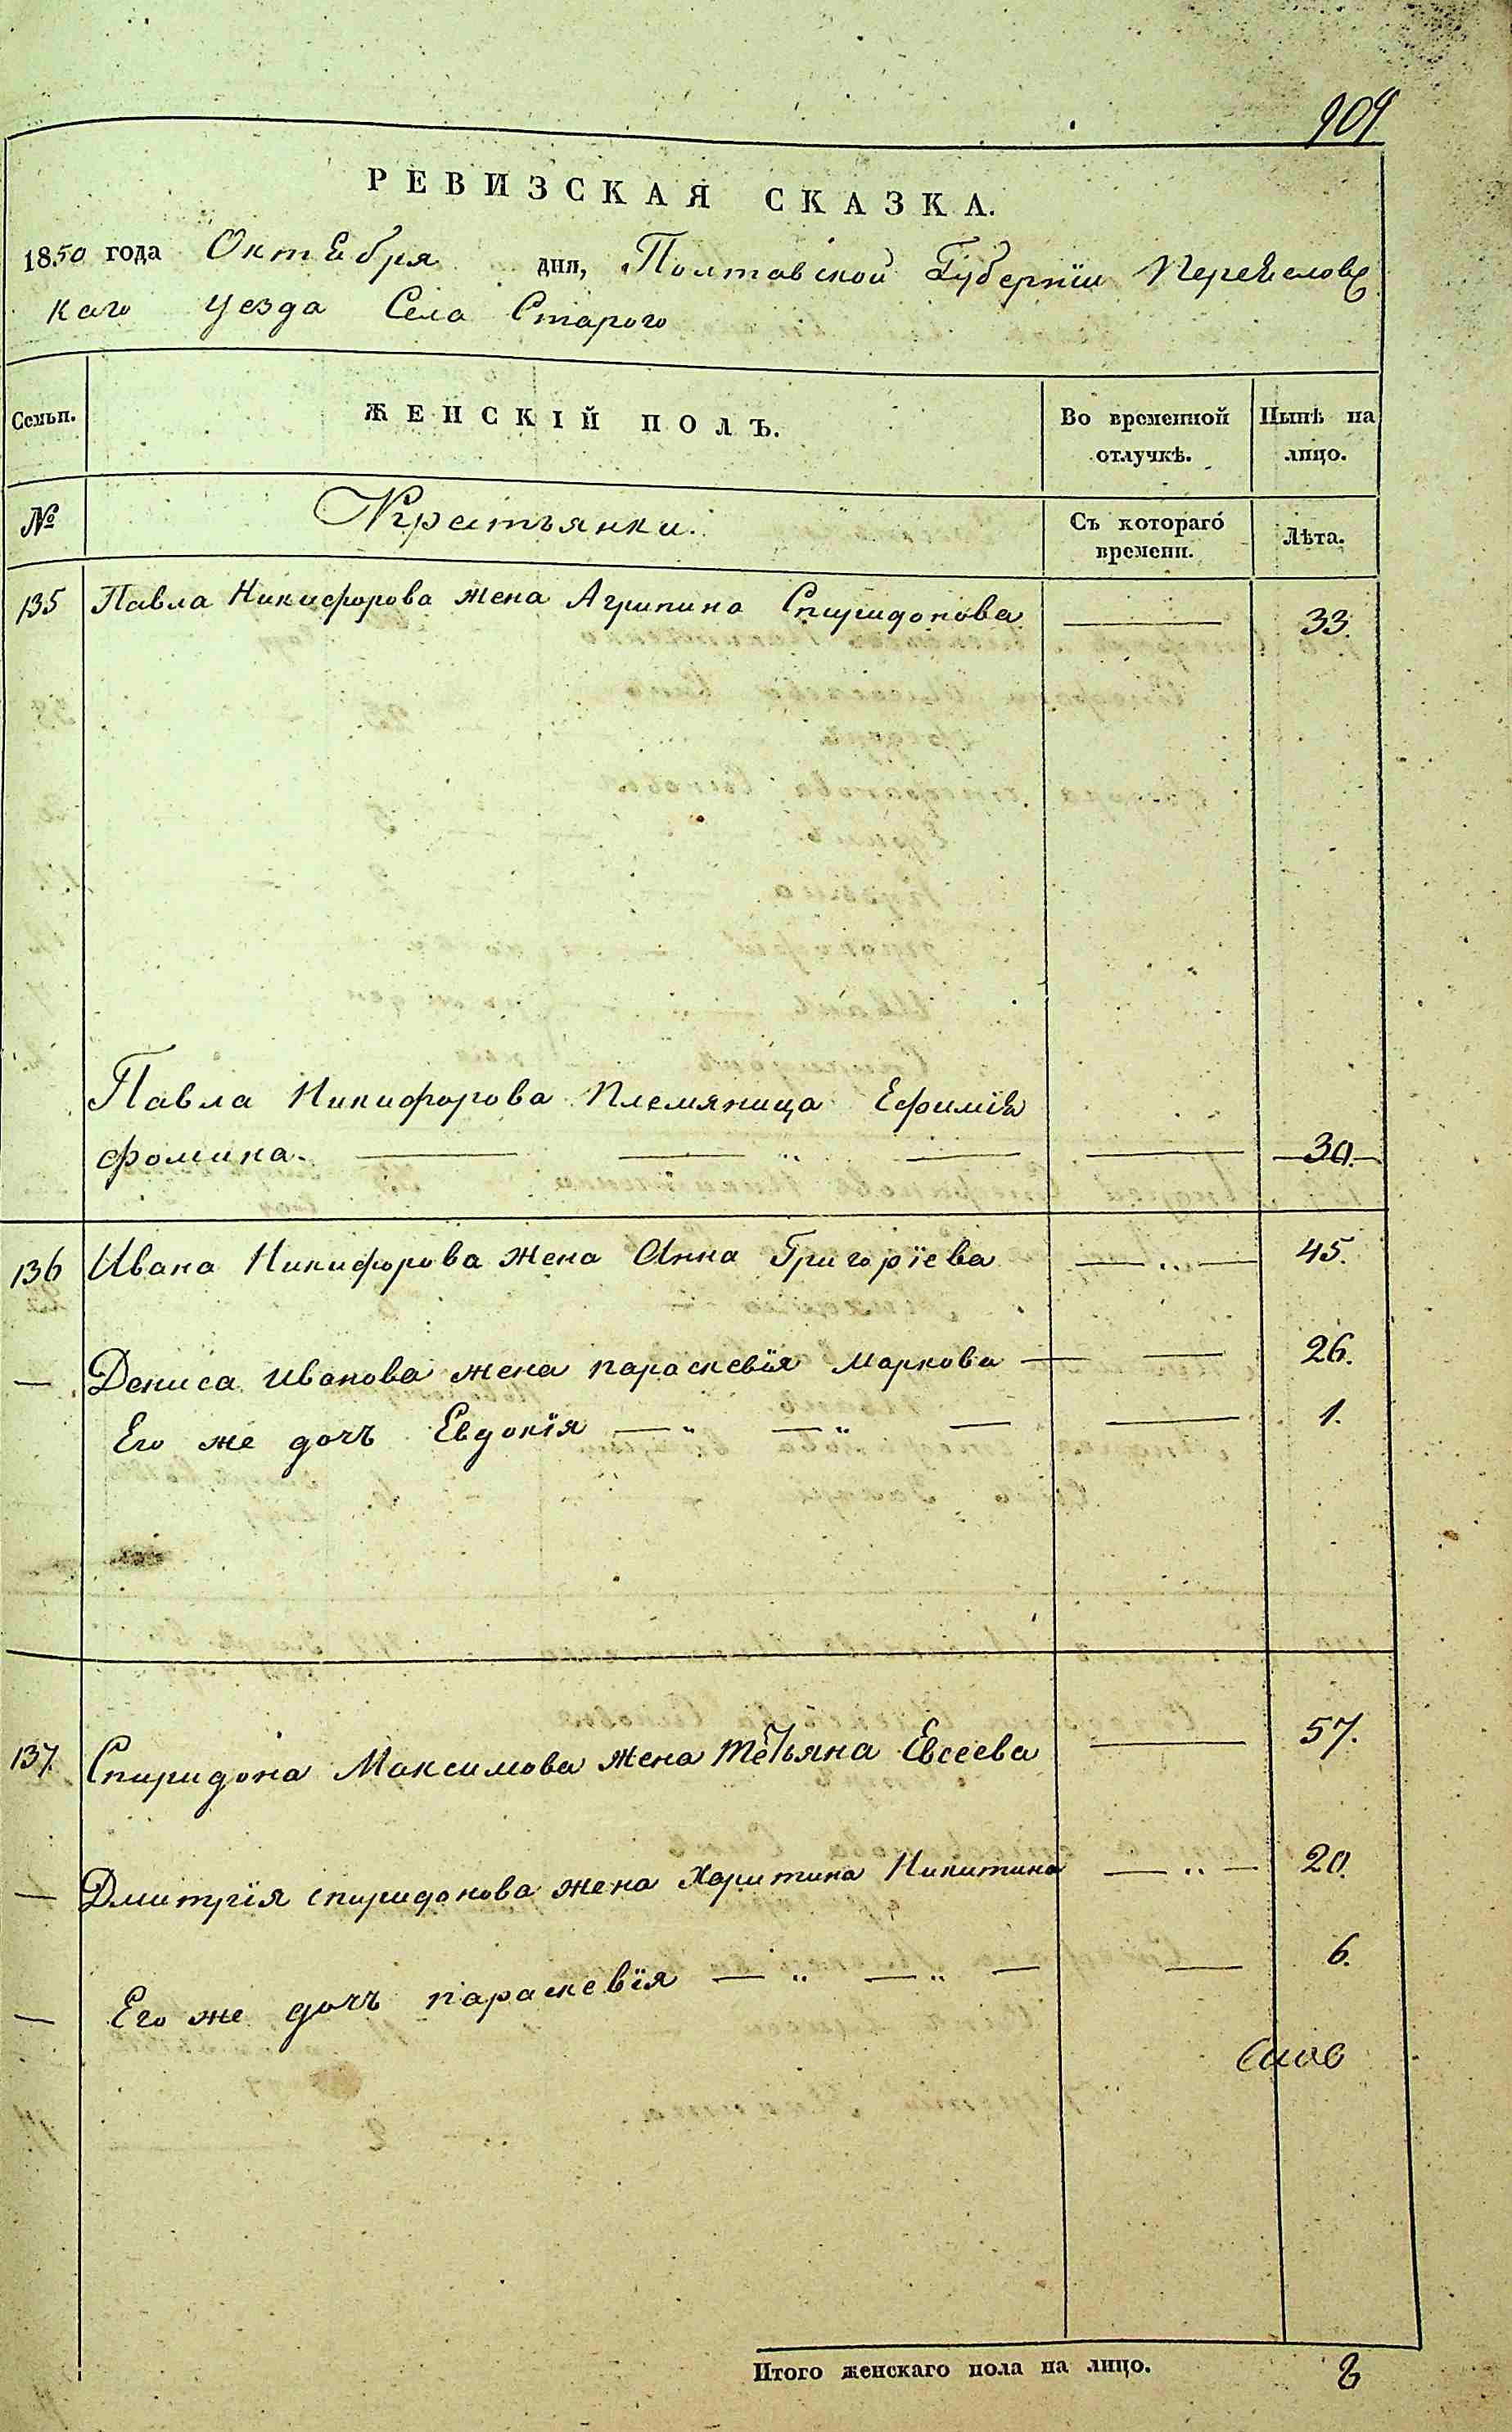 909
РЕВИЗСКАЯ СКАЗКА.
1850 года Октября дня, Полтавской Губернїи Переясловс
каго уезда Села Старого
Семьи. ЖЕНСКІЙ ПОЛЪ. Во временной отлучкѣ. Нынѣ на лицо.
№ Крестьянки. Съ котораго времени. Лѣта.
135 Павла Никифорова жена Агрипина Спиридонова — 33.
Павла Никифорова Племяница Ефимїя
фомина. — — „ — — 30.
136 Ивана Никифорова жена Анна Григорїева — „ — 45.
— Дениса Иванова жена параскевїя Маркова — — 26.
Его же дочъ Евдокїя — „ — „ — — 1.
137. Спиридона Максимова жена тетьяна Евсеева — 57.
— Дмитрїя спиридонова жена Харитина Никитина — „ — 20.
— Его же дочъ параскевїя — „ — „ — — 6.
Итого женскаго пола на лицо. 8